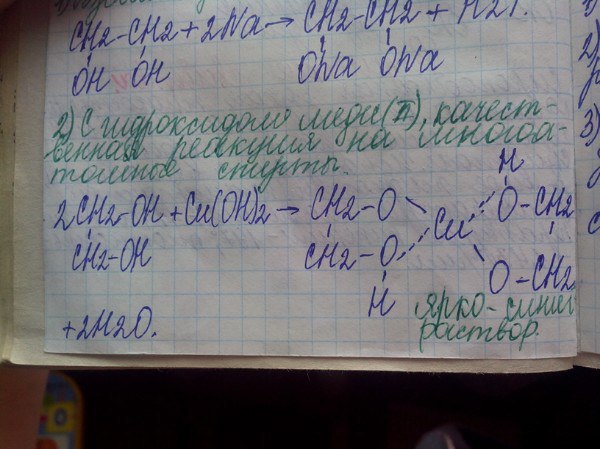 CH2-CH2+2Na→CH2-CH2+H2↑.
OH OH ONa ONa
2) С гидроксидом меди(II), качест-
венная реакция на многоа-
томные спирты.
H
2CH2-OH+Cu(OH)2→CH2-O Cu O-CH2
CH2-OH CH2-O O-CH2
H
+2H2O.
ярко-синий
раствор.
1)
2)
3)